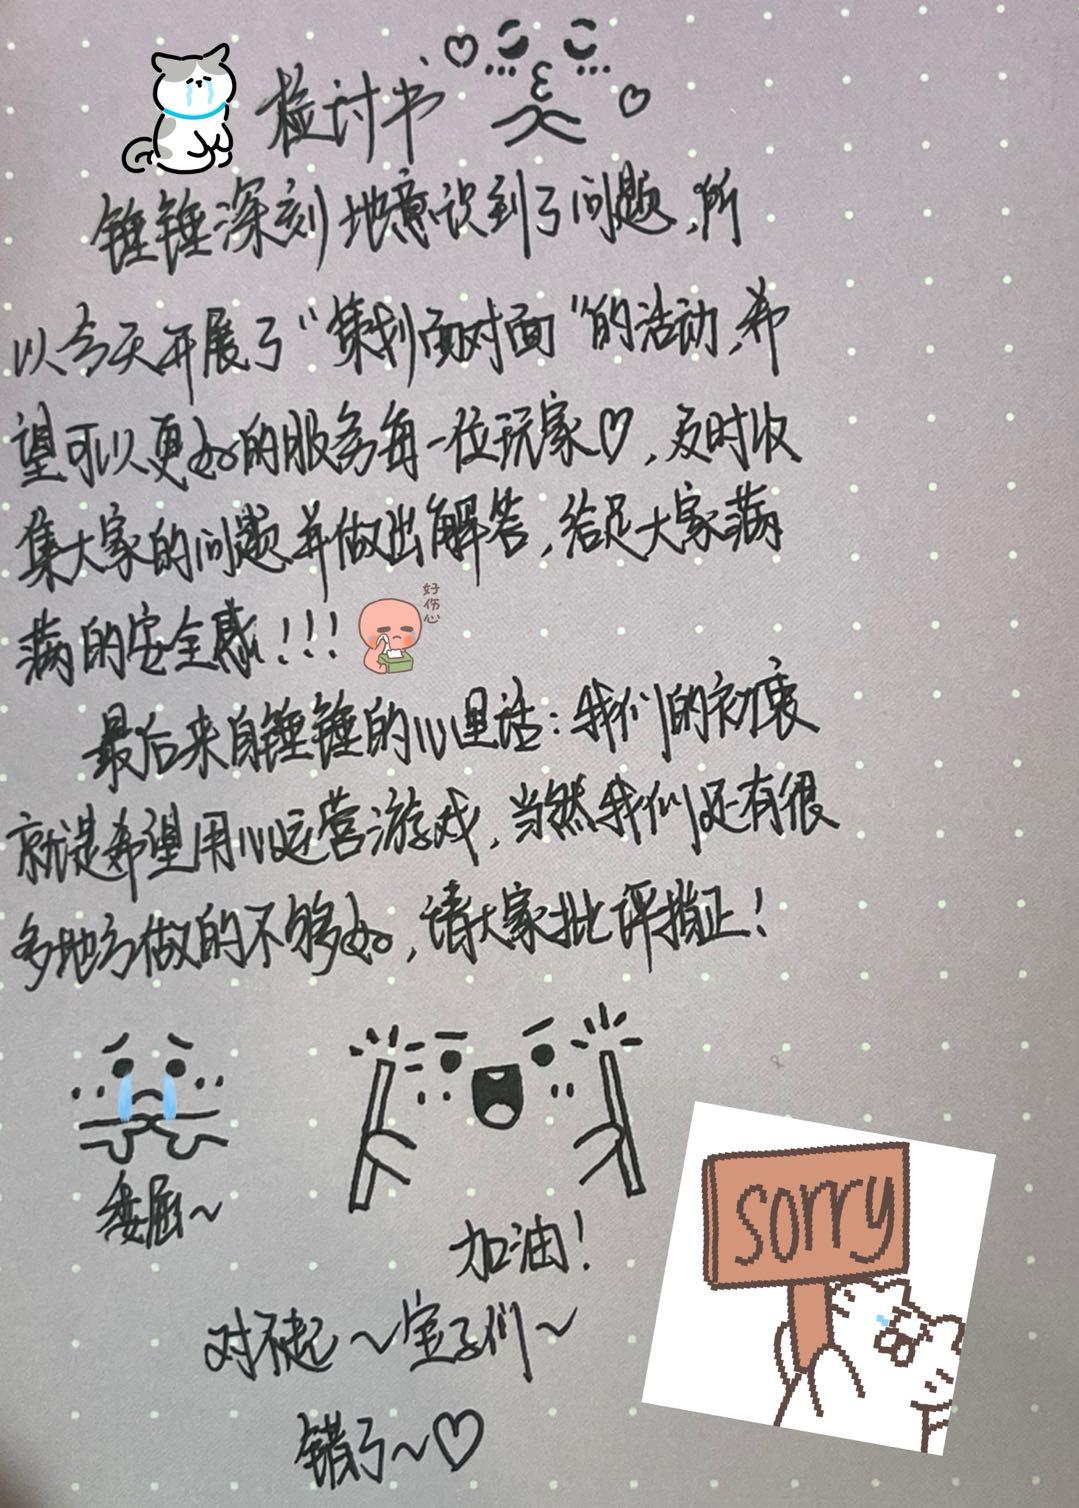 检讨书
锤锤深刻地意识到了问题,所
以今天开展了“策划面对面”的活动,希
望可以更好的服务每一位玩家♡,及时收
集大家的问题并做出解答,给足大家满
满的安全感!!!
好伤心
最后来自锤锤的心里话:我们的初衷
就是希望用心运营游戏,当然我们还有很
多地方做的不够好,请大家批评指正!
委屈~
加油!
sorry
对不起~宝子们~
错了~♡